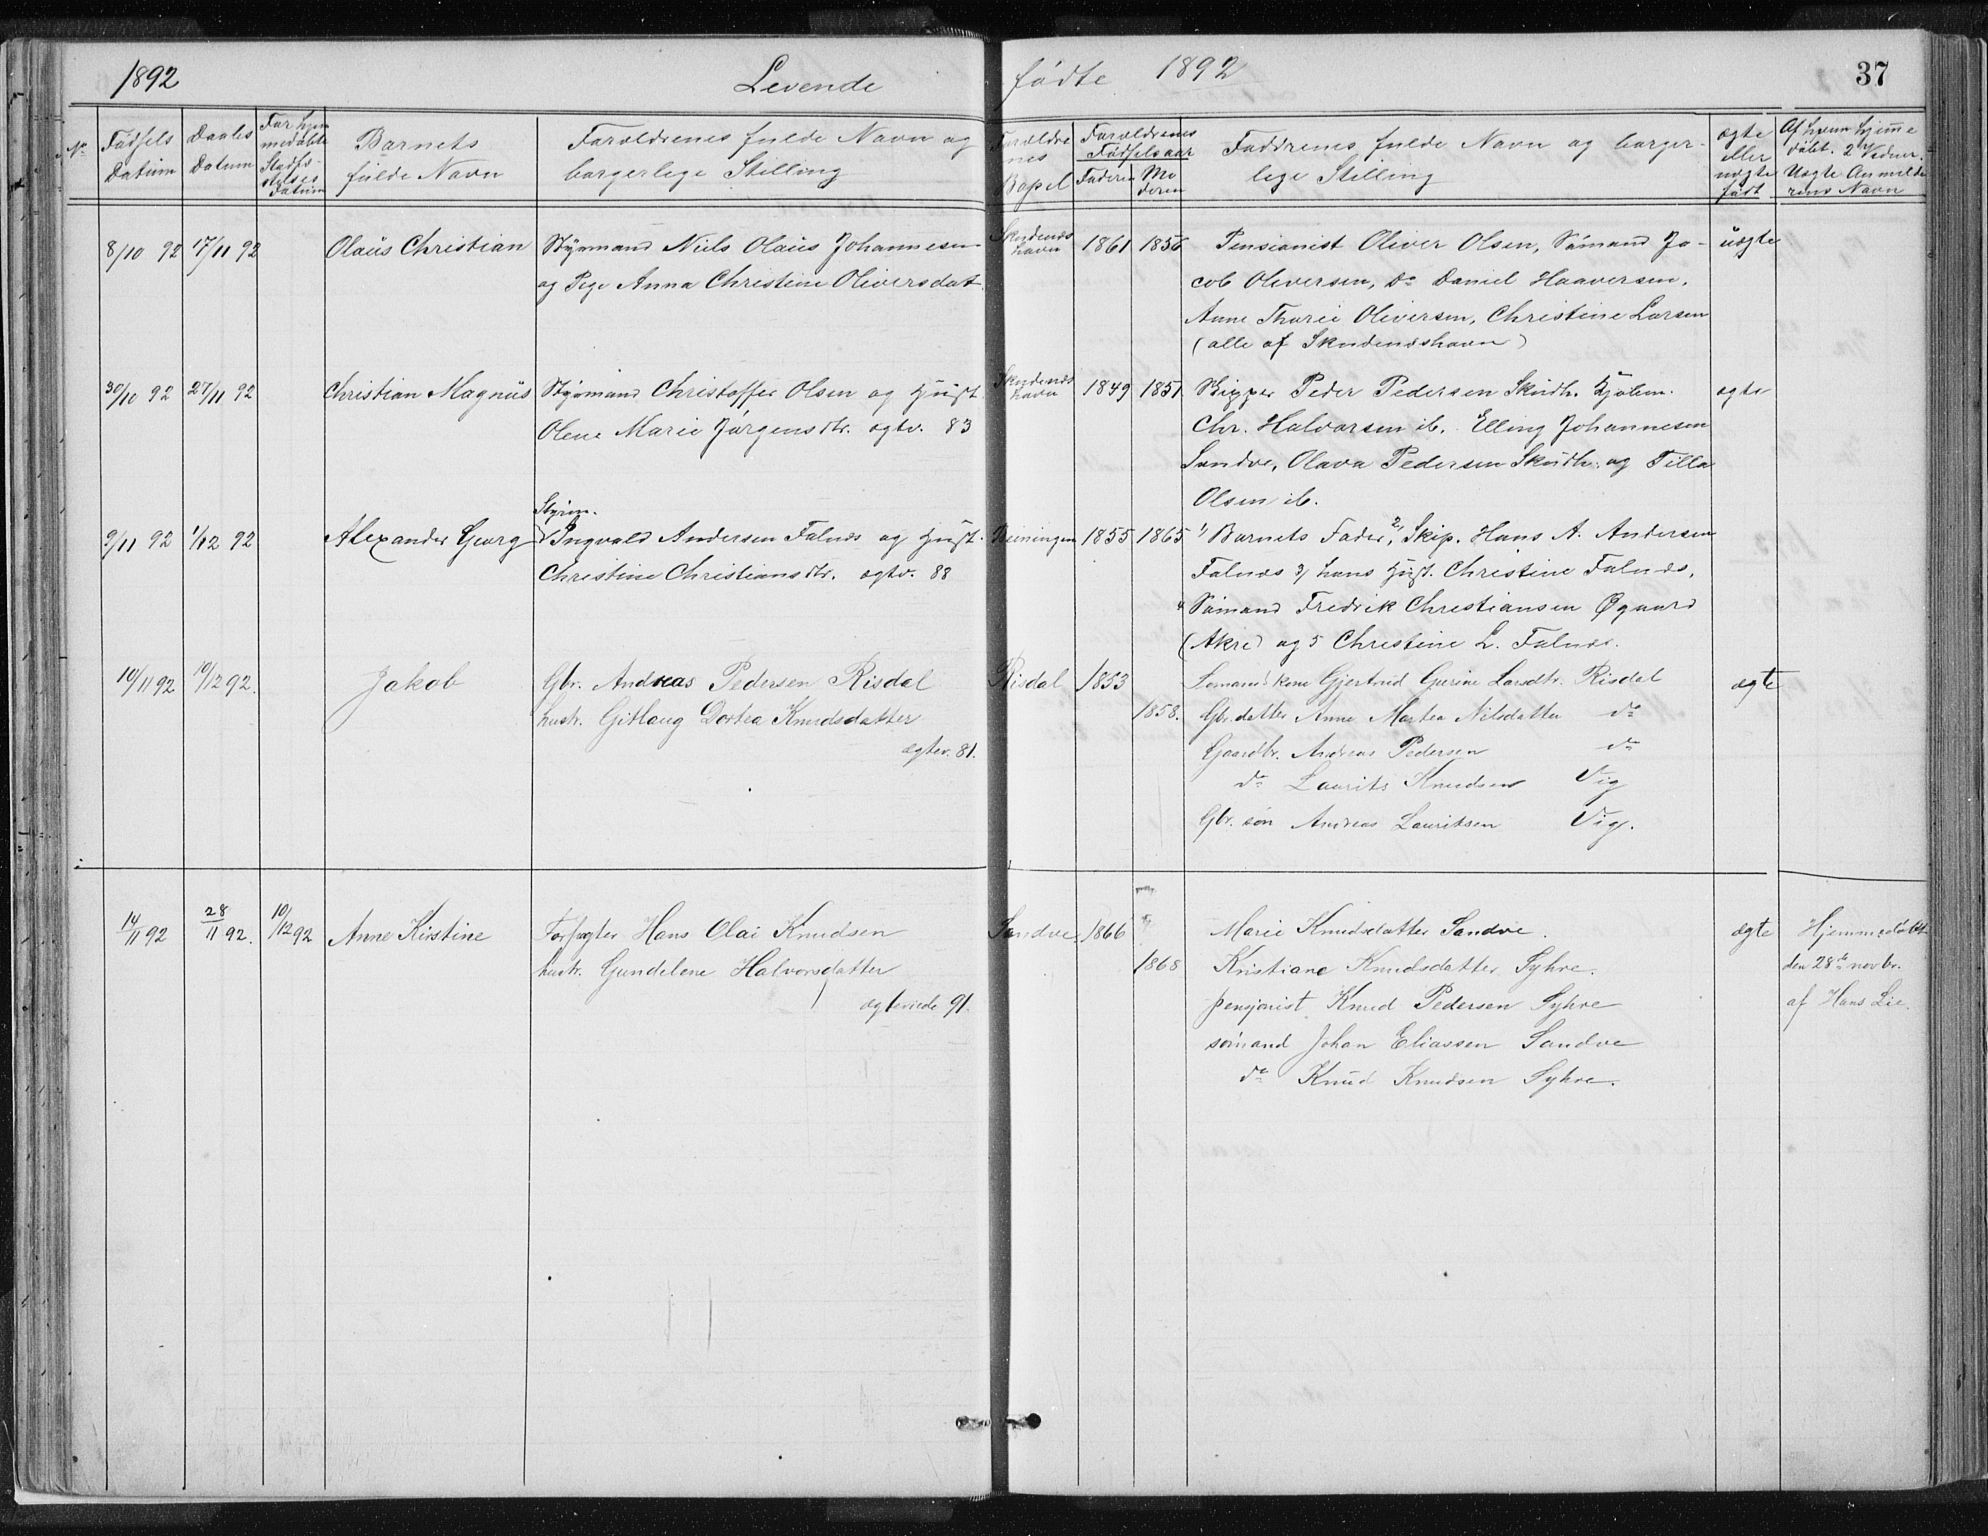 1892 Levende fødte 1892 37
No. Fødsels Datum Daabs Datum For hjemmedøbte Stadfæstelses Datum Barnets fulde Navn Forældrenes fulde Navn og borgerlige Stilling Forældrenes Bopel Forældrenes Fødselsaar Faderen Moderen Faddrenes fulde Navn og borgerlige Stilling ægte eller uægte født Af hvem hjemmedøbt. 2 Vidner. Uægte Anmelderens Navn
8/10 92 17/11 92 Olaus Christian Styrmand Niels Olaus Johannesen Skudenæshavn 1861 1856 Pensionist Oliver Olsen, Sømand Ja- uægte
og Pige Anna Christine Oliversdat. cob Oliversen, Do Daniel Haaversen,
Anne Thorie Oliversen, Christine Larsen
(alle af Skudenæshavn)
30/10 92 27/11 92 Christian Magnus Styrmand Christoffer Olsen og Hust. Skudenæshavn 1849 1851 Skipper Peder Pedersen Skudh. Kjøbm. ægte
Olene Marie Jørgensdtr. ægtv. 83 Chr. Halvorsen ib. Elling Johannesen
Sandve, Olava Pedersen Skudh. og Tilla
Olsen ib.
Styrm.
9/11 92 1/12 92 Alexander Georg Ingvald Andersen Falnæs og Hust. Beiningen 1855 1865 1) Barnets Fader, 2) Skip. Hans A. Andersen
Christine Christiansdtr. ægtv. 88 Falnæs 3) hans Hust. Christine Falnæs,
4 Sømand Fredrik Christiansen Øgaard
(Akre) og 5 Christine L. Falnæs.
10/11 92 10/12 92. Jakob Gbr. Andreas Pedersen Risdal Risdal 1853 Sømands kone Gjertrud Gurine Larsdtr. Risdal ægte
hustr. Gitlaug Dortea Knudsdatter 1858. Gbr. datter Anne Martea Nilsdatter do
ægtev. 81. Gaardbr. Andreas Pedersen do
do Laurits Knudsen Vig
Gbr. søn Andreas Lauritsen Vig.
14/11 92 28/11 92. 10/12 92 Anne Kirstine Forpagter Hans Olai Knudsen Sandve 1866 Marie Knudsdatter Sandve. ægte Hjemmedøbt
hustr. Gundelene Halvorsdatter 1868 Kristiane Knudsdatter Syhre. den 28de novbr.
ægteviede 91. pensjonist Knud Pedersen Syhre af Hans Lie.
sømand Johan Eliassen Sandve
do Knud Knudsen Syhre.